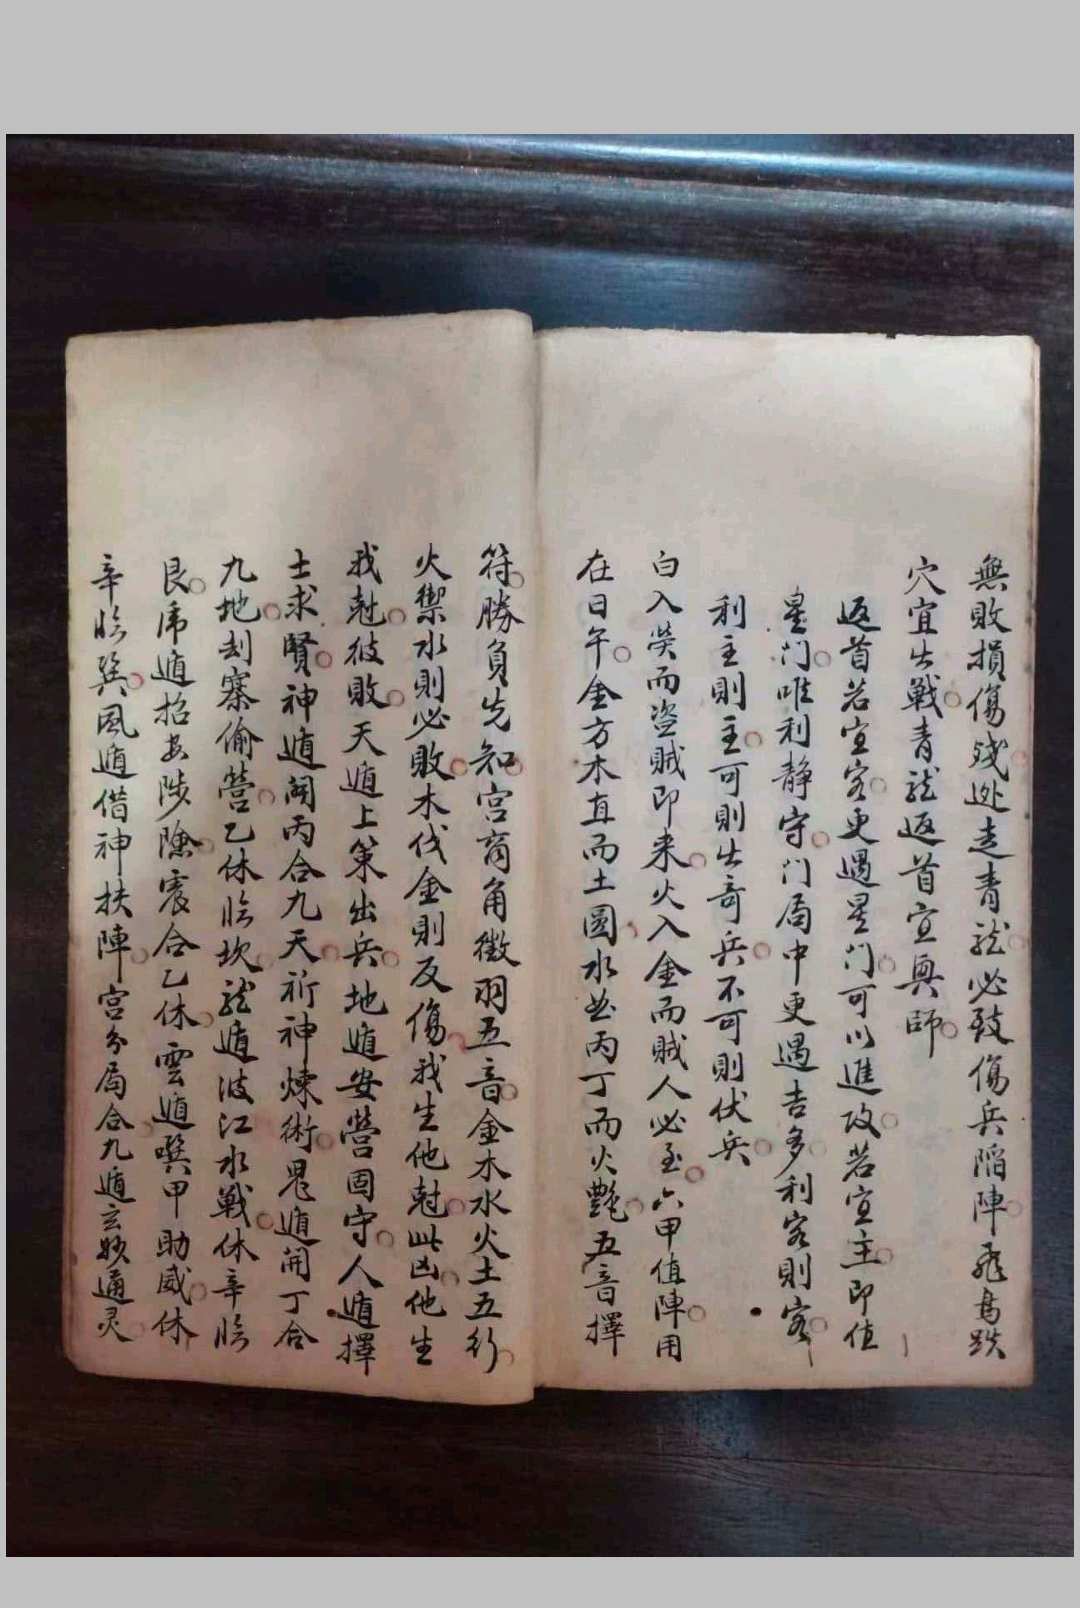 無敗損傷殘逃走青龍必致傷兵陷陣飛鳥跌
穴宜出戰青龍返首宜興師
返首若宜客更遇星门可以進攻若宜主即值
星门唯利靜守门局中更遇吉多利客則客
利主則主可則出奇兵不可則伏兵
白入熒而盗賊即来火入金而賊人必至六甲值陣用
在日午金方木直而土圆水並丙丁而火艷五音擇
符勝負先知宫商角徵羽五音金木水火土五行
火禦水則必敗木伐金則反傷我生他尅此凶他生
我尅彼敗天遁上策出兵地遁安營固守人遁擇
士求賢神遁闻丙合九天祈神煉術鬼遁開丁合
九地刦寨偷營乙休临坎龍遁波江水戰休辛临
艮虎遁招安涉險震合乙休雲遁噀甲助威休
辛临巽風遁借神扶陣宫分局合九遁玄妙通灵